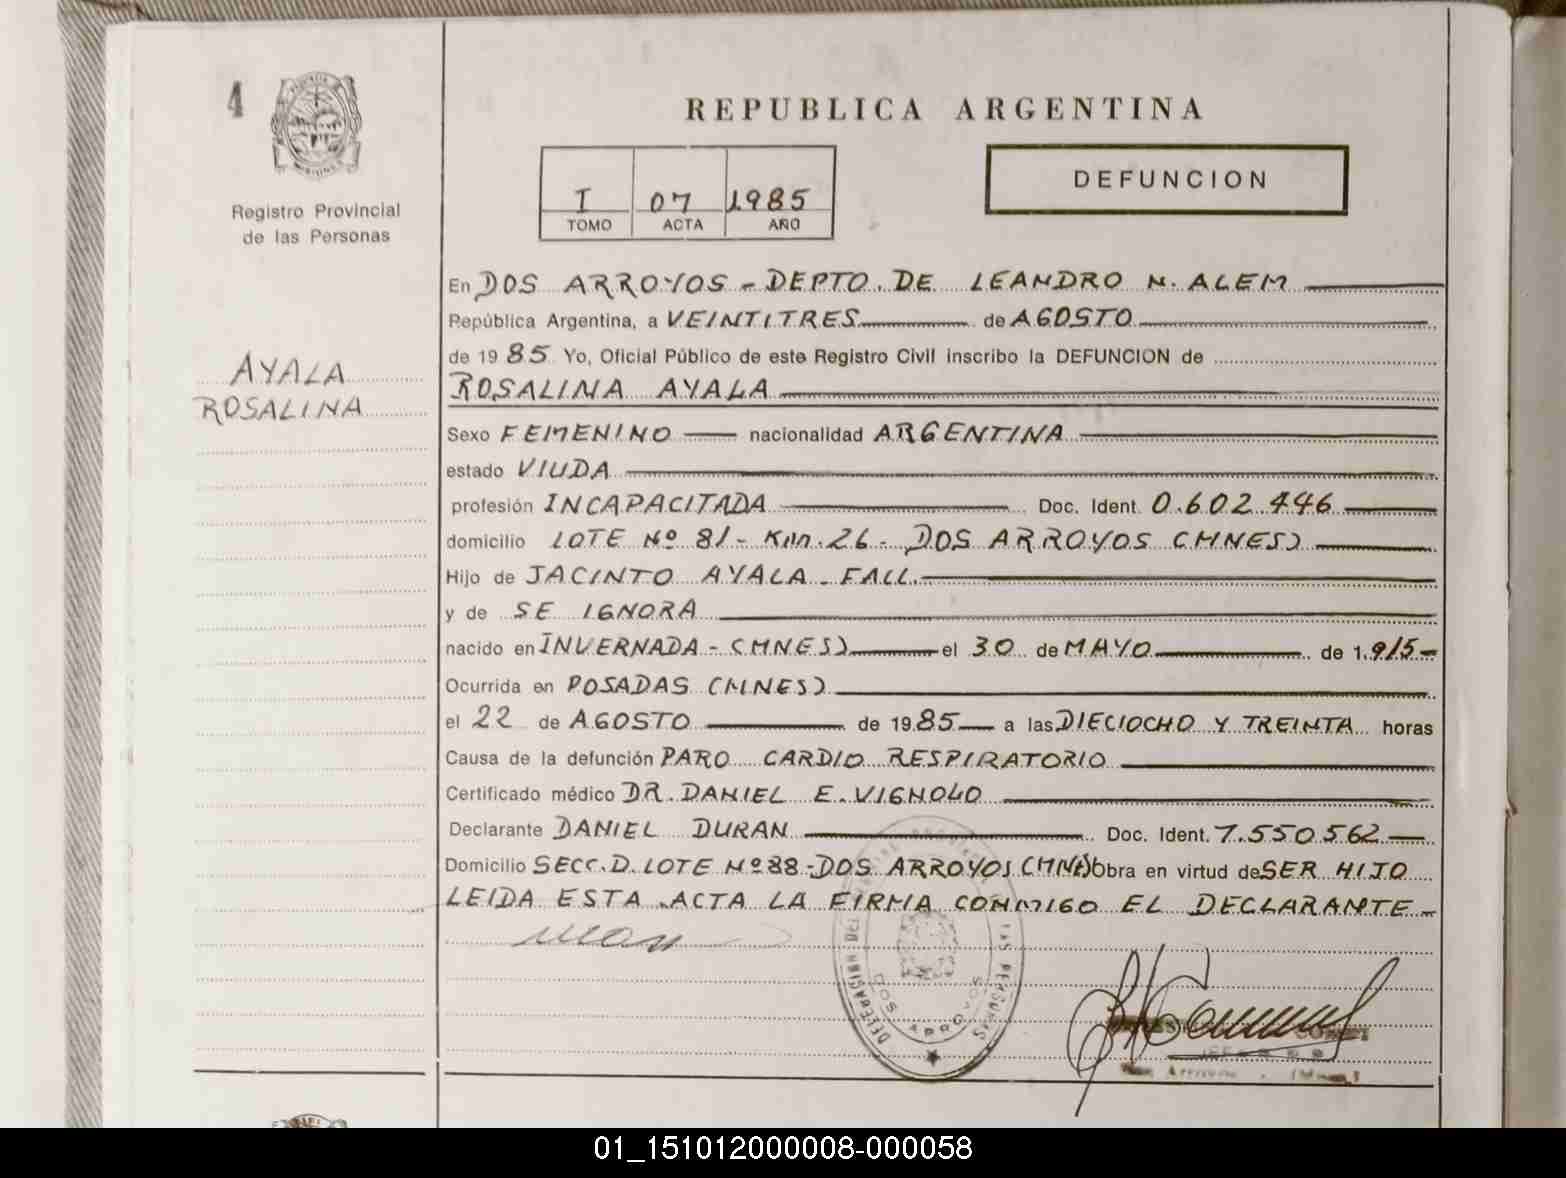 4
Registro Provincial
de las Personas
AYALA
ROSALINA
REPUBLICA ARGENTINA
I 07 1985
TOMO ACTA AÑO
DEFUNCION
En DOS ARROYOS - DEPTO. DE LEANDRO N. ALEM
República Argentina, a VEINTITRES de AGOSTO
de 1985 Yo, Oficial Público de este Registro Civil inscribo la DEFUNCION de
ROSALINA AYALA
Sexo FEMENINO nacionalidad ARGENTINA
estado VIUDA
profesión INCAPACITADA Doc. Ident. 0.602.446
domicilio LOTE Nº 81 - Km. 26 - DOS ARROYOS (MNES)
Hijo de JACINTO AYALA - FALL.
y de SE IGNORA
nacido en INVERNADA - (MNES) el 30 de MAYO de 1.915-
Ocurrida en POSADAS (MNES)
el 22 de AGOSTO de 1985 a las DIECIOCHO Y TREINTA horas
Causa de la defunción PARO CARDIO RESPIRATORIO
Certificado médico DR. DANIEL E. VIGNOLO
Declarante DANIEL DURAN Doc. Ident. 7.550562
Domicilio SECC. D. LOTE Nº 88 - DOS ARROYOS (MNES) Obra en virtud de SER HIJO
LEIDA ESTA ACTA LA FIRMA CONMIGO EL DECLARANTE -
DELEGACION DEL LAS PERSONAS
DOS ARROYOS
01_151012000008-000058